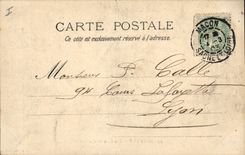 CARTE POSTALE
Ce côté est exclusivement réservé à l'adresse.
MACON
SAONE-ET-LOIRE
Monsieur P. Calle
94 Cours Lafayette
Lyon